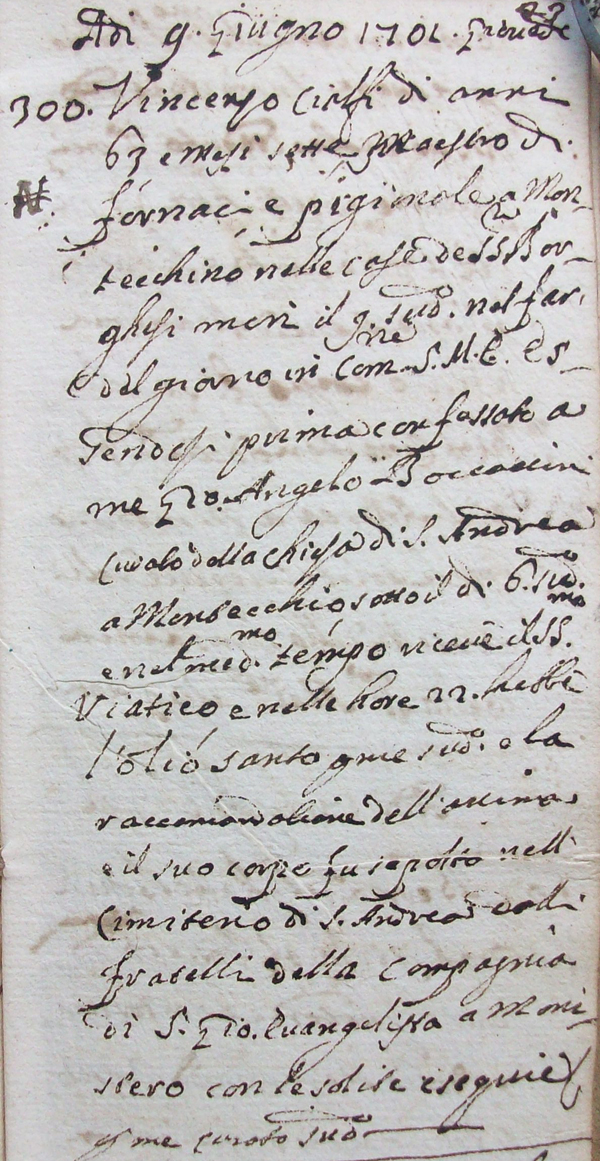 Adi 9. Giugno 1701. Giovedì
300. Vincenzo Cialfi di anni
63 e mesi sette Maestro di
fornaci e pigionale a Mon-
tecchino nelle case de SS.ri Bor-
ghesi morì il g.no sud.o nel far
del giorno in Com.ne S. M. E. es-
sendosi prima confessato a
me Gio. Angelo Boccaccini
Curato della chiesa di S. Andrea
a Montecchio sotto il dì 6. sud.o
e nel med.mo tempo riceuè il SS.mo
Viatico e nelle hore 22. hebbe
l'olio santo p me sud.o e la
raccomandatione dell'anima
e il suo corpo fu sepolto nell
Cimiterio di S. Andrea dalli
fratelli della Compagnia
di S. Gio. Euangelista a Moni-
stero con le solite esequie
p me Curato sud.o